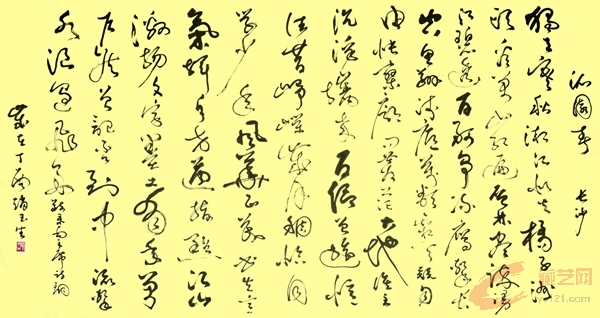 沁园春 长沙
独立寒秋湘江北去橘子洲
头看万山红遍层林尽染漫
江碧透百舸争流鹰击长
空鱼翔浅底万类霜天竞自
由怅寥廓问苍茫大地谁主
沉浮携来百侣曾游忆
往昔峥嵘岁月稠恰同
学少年风华正茂书生意
气挥斥方遒指点江山
激扬文字粪土当年万
户侯曾记否到中流击
水浪遏飞舟 毛主席诗词
岁在丁酉 玉生
藏艺网